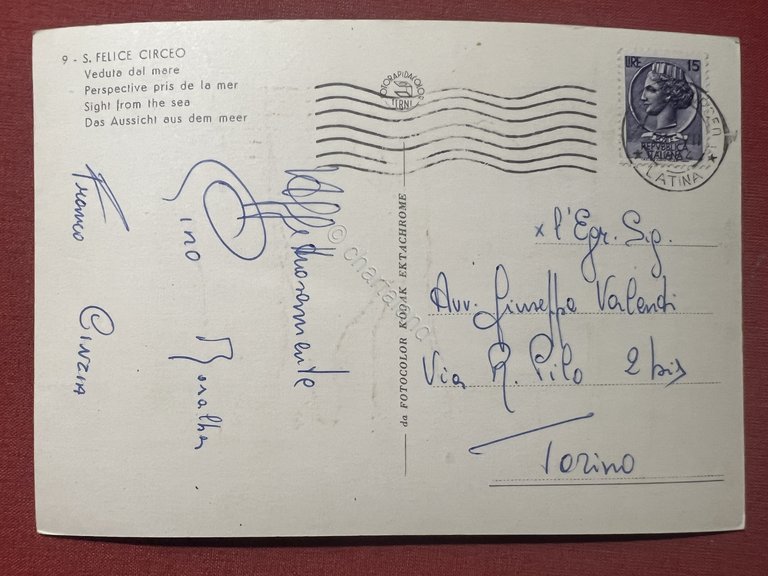 9 - S. FELICE CIRCEO
Veduta dal mare
Perspective pris de la mer
Sight from the sea
Das Aussicht aus dem meer
FOTORAPIDACOLOR
TERNI
LIRE 15
REPUBBLICA
ITALIANA
LATINA
x l'Egr. Sig.
Avv. Giuseppe Valenti
Via R. Pilo 2 bis
Torino
da FOTOCOLOR KODAK EKTACHROME
Affettuosamente
Gino
Franco
Cinzia
© chartaland